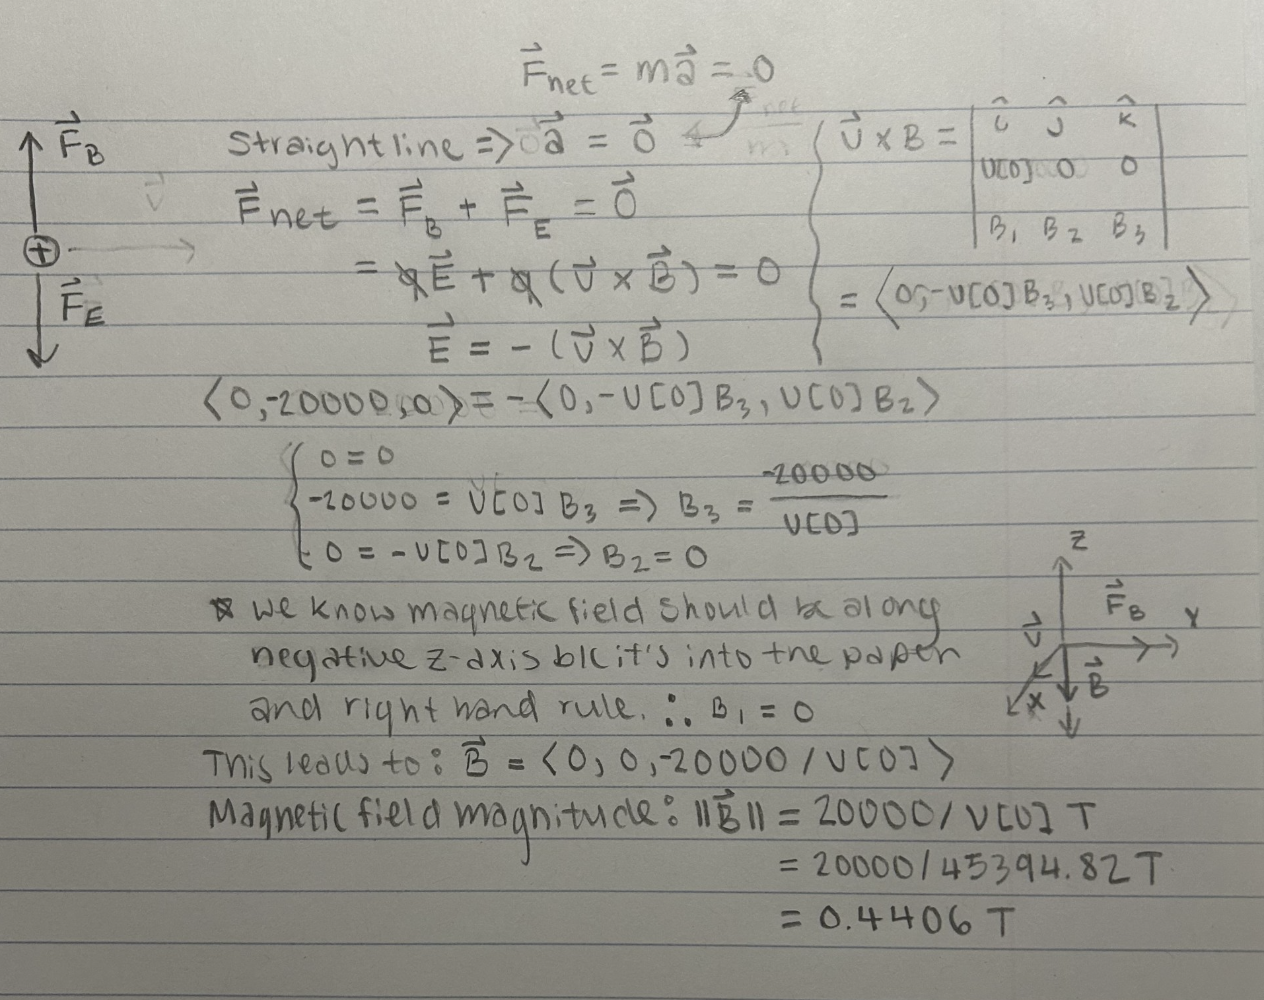 F⃗net = ma⃗ = 0
F⃗B
Straight line => a⃗ = 0⃗
F⃗net = F⃗B + F⃗E = 0⃗
+
= qE⃗ + q(v⃗ × B⃗) = 0
F⃗E
E⃗ = -(v⃗ × B⃗)
v⃗ × B = | î ĵ k̂ |
| v[0] 0 0 |
| B₁ B₂ B₃ |
= ⟨0, -v[0]B₃, v[0]B₂⟩
⟨0, -20000, 0⟩ = -⟨0, -v[0]B₃, v[0]B₂⟩
0 = 0
-20000 = v[0]B₃ => B₃ = -20000 / v[0]
0 = -v[0]B₂ => B₂ = 0
☆ we know magnetic field should be along
negative z-axis b/c it's into the paper
and right hand rule. ∴ B₁ = 0
z
F⃗B y
v⃗
B⃗
x
This leads to: B⃗ = ⟨0, 0, -20000/v[0]⟩
Magnetic field magnitude: ||B⃗|| = 20000/v[0] T
= 20000/45394.82 T
= 0.4406 T